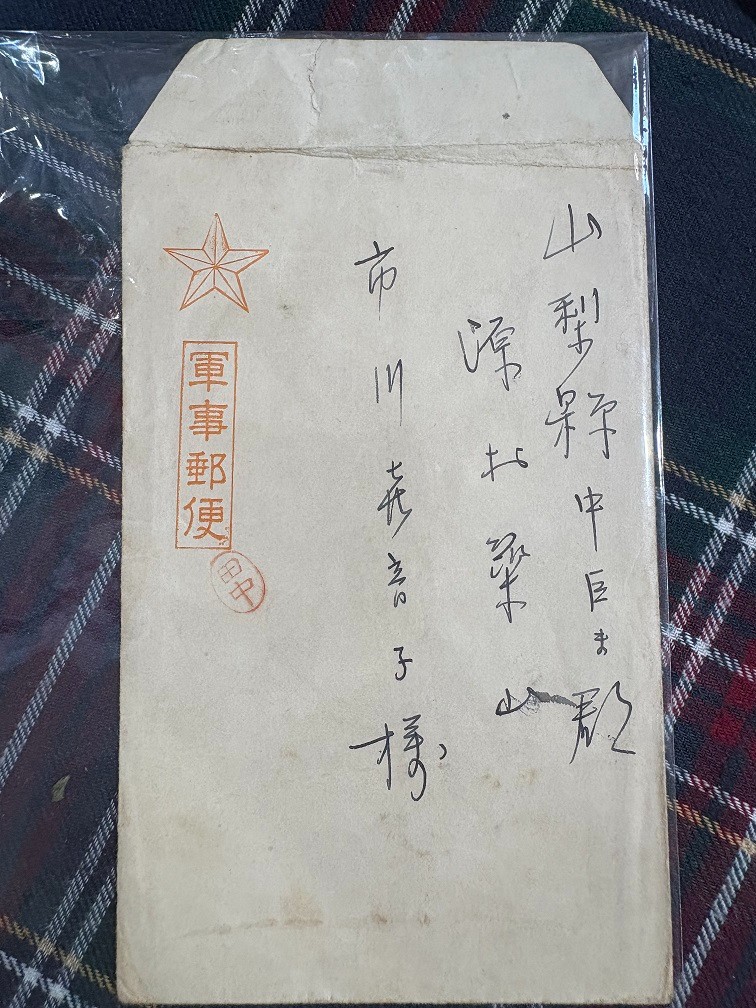 山梨縣中巨ま郡
源村築山
市川喜音子様
軍事郵便
田中